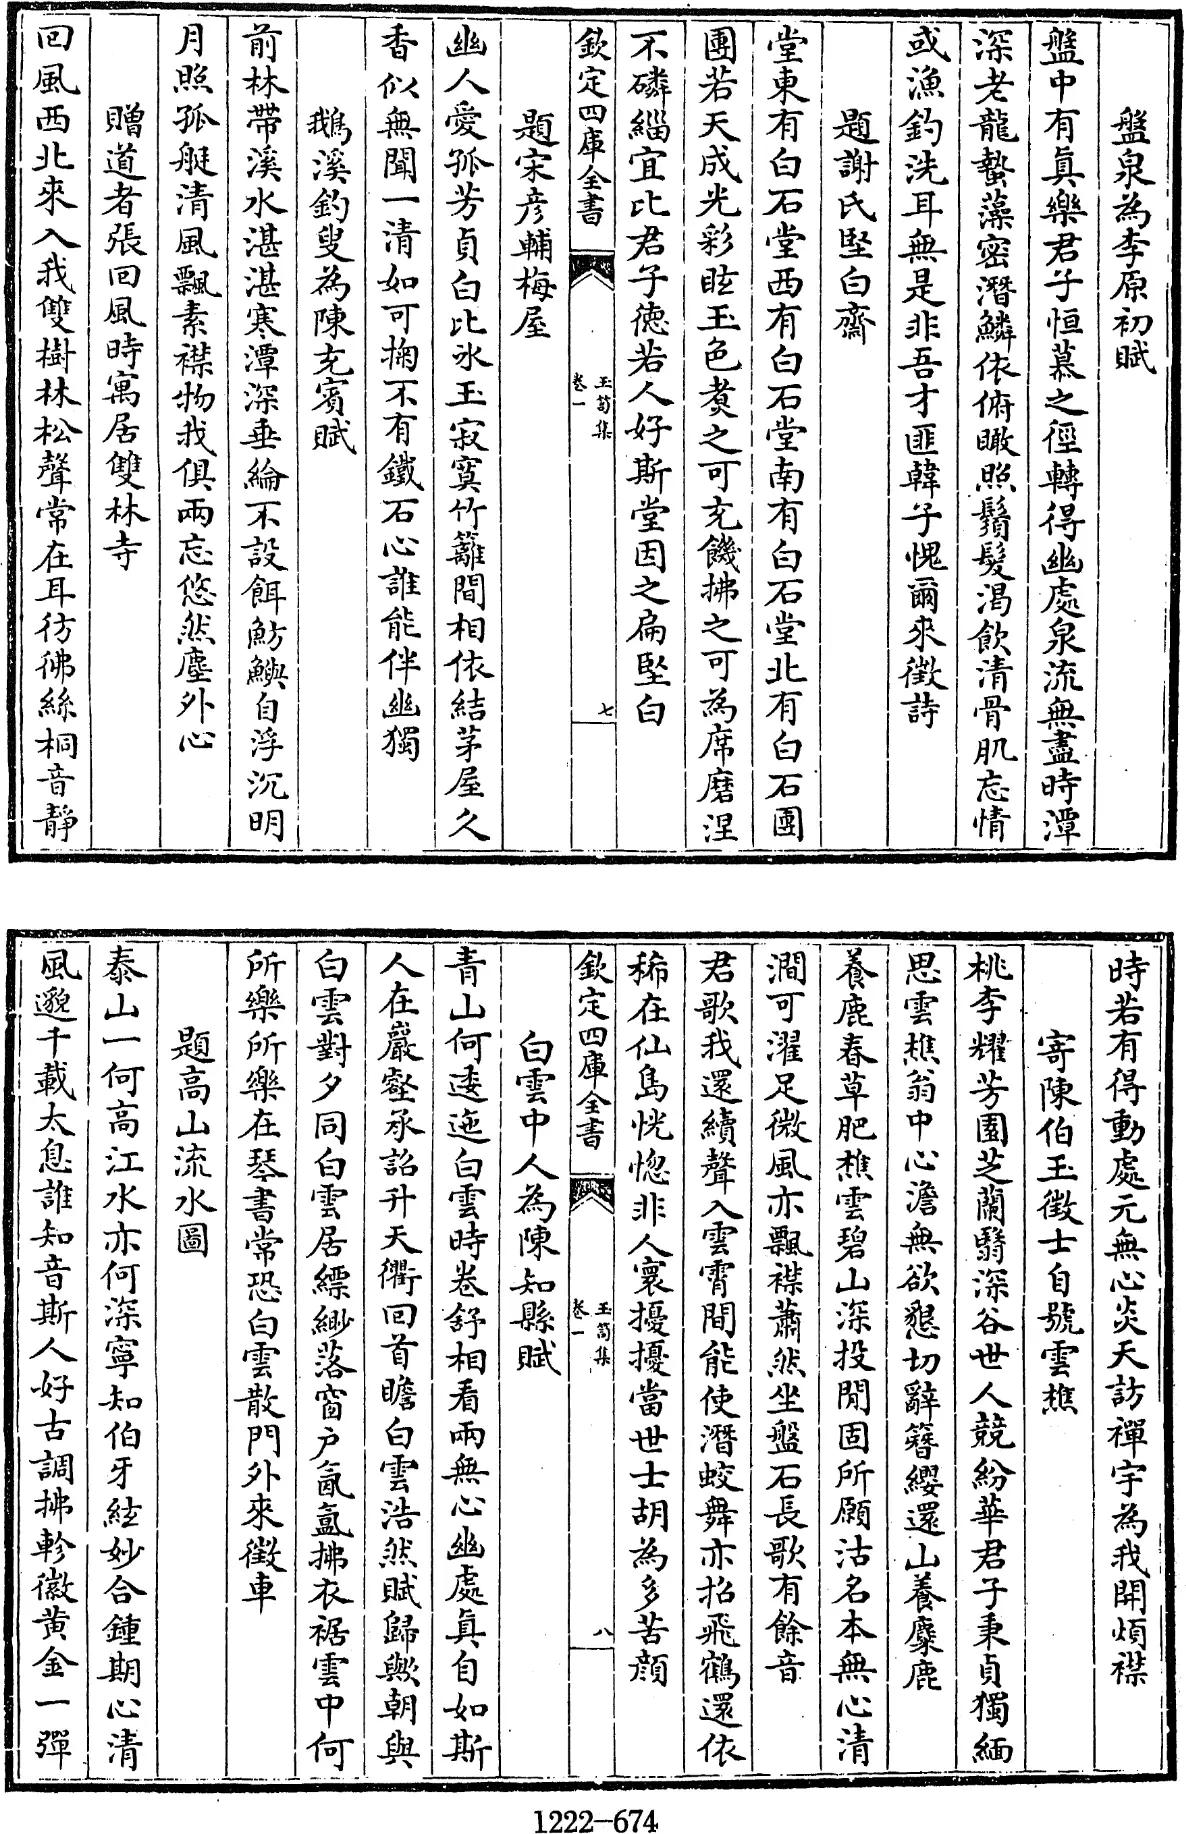 盤泉為李原初賦
盤中有真樂君子恒慕之徑轉得幽處泉流無盡時潭
深老龍蟄藻密潛鱗依俯瞰照鬚髮渴飲清骨肌忘情
或漁釣洗耳無是非吾才匪韓子愧爾來徵詩
題謝氏堅白齋
堂東有白石堂西有白石堂南有白石堂北有白石團
團若天成光彩眩玉色煑之可充饑拂之可為席磨涅
不磷緇宜比君子德若人好斯堂因之扁堅白
欽定四庫全書
玉笥集
卷一
七
題宋彥輔梅屋
幽人愛孤芳貞白比冰玉寂寞竹籬間相依結茅屋久
香似無聞一清如可掬不有鐵石心誰能伴幽獨
鵝溪釣叟為陳充賓賦
前林帶溪水湛湛寒潭深垂綸不設餌魴鱮自浮沉明
月照孤艇清風飄素襟物我俱兩忘悠然塵外心
贈道者張回風時寓居雙林寺
回風西北來入我雙樹林松聲常在耳彷彿絲桐音靜
時若有得動處元無心炎天訪禪宇為我開煩襟
寄陳伯玉徵士自號雲樵
桃李耀芳園芝蘭翳深谷世人競紛華君子秉貞獨緬
思雲樵翁中心澹無欲懇切辭簪纓還山養麋鹿
養鹿春草肥樵雲碧山深投閒固所願沽名本無心清
澗可濯足微風亦飄襟蕭然坐盤石長歌有餘音
君歌我還續聲入雲霄間能使潛蛟舞亦招飛鶴還依
稀在仙島恍惚非人寰擾擾當世士胡為多苦顏
欽定四庫全書
玉笥集
卷一
八
白雲中人為陳知縣賦
青山何逶迤白雲時卷舒相看兩無心幽處真自如斯
人在巖壑承詔升天衢回首瞻白雲浩然賦歸歟朝與
白雲對夕同白雲居縹緲落窗戶氤氳拂衣裾雲中何
所樂所樂在琴書常恐白雲散門外來徵車
題高山流水圖
泰山一何高江水亦何深寧知伯牙絃妙合鍾期心清
風邈千載太息誰知音斯人好古調拂軫徽黃金一彈
1222-674